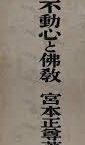 不動心と佛敎 宮本正尊著